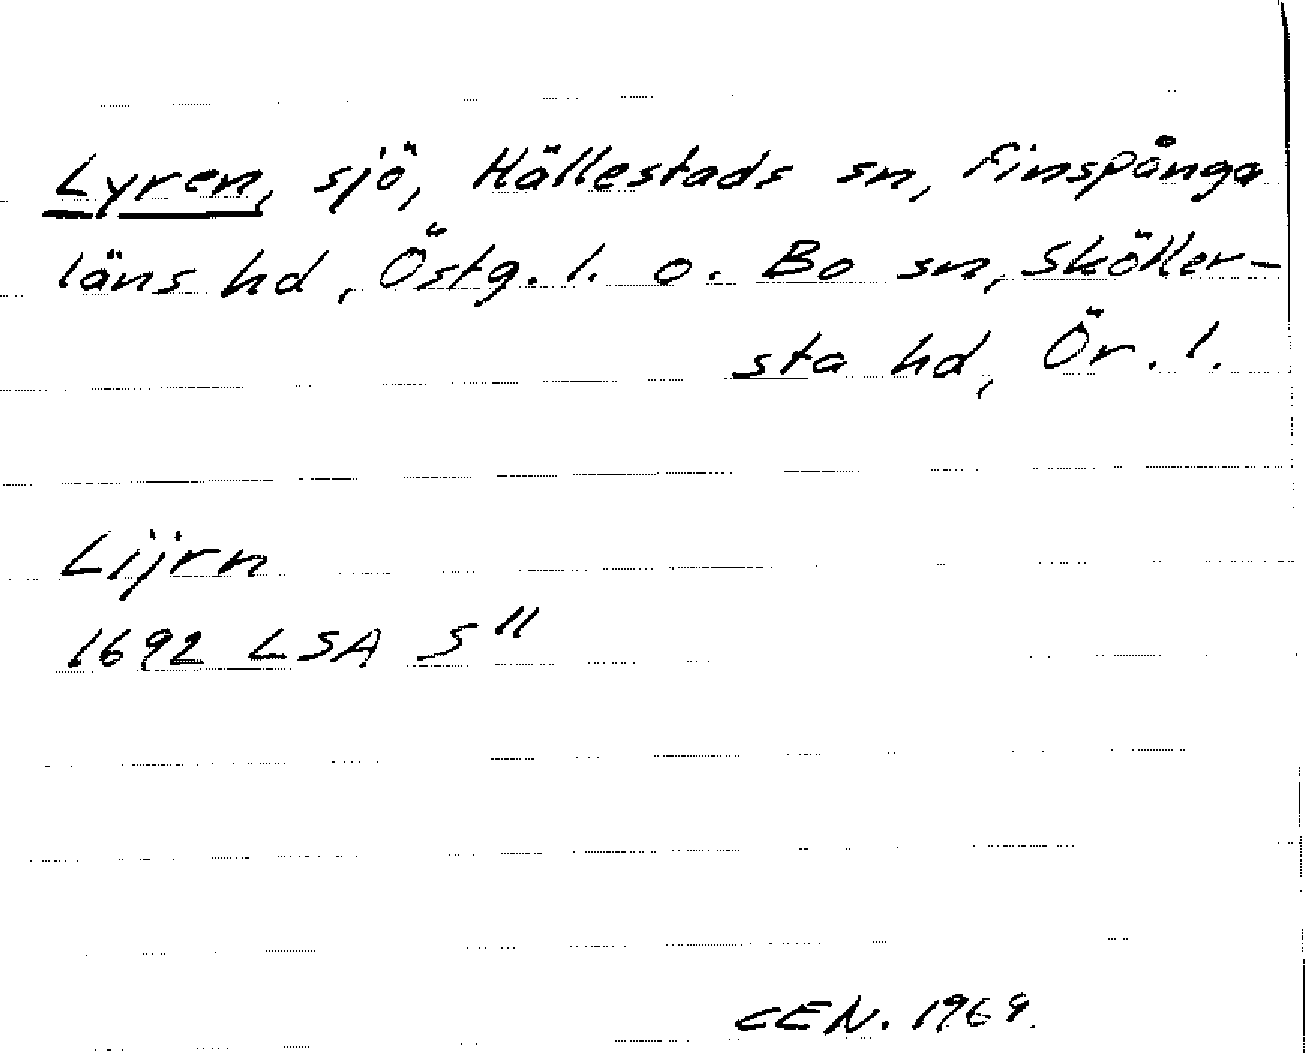 Lyren, sjö, Hällestads sn, Finspånga
läns hd, Östg. l. o. Bo sn, Sköller-
sta hd, Ör. l.
Lijrn
1692 LSA S 11
CEN. 1969.